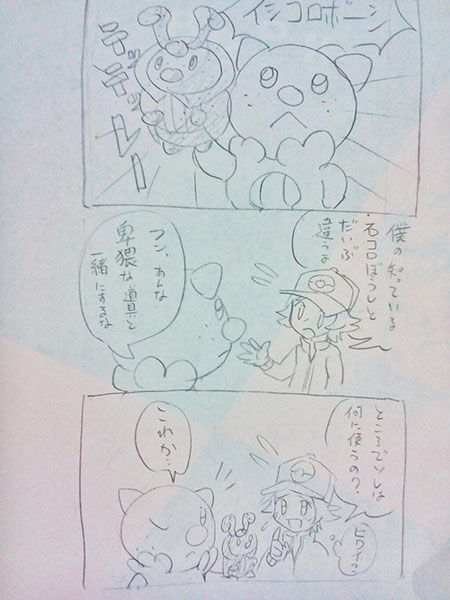 イシコロボーシ
テッテレー
僕の知っている
石コロぼうしと
だいぶ
違うよ
フン、あんな
卑猥な道具と
一緒にするな
ところでソレは
何に使うの？
これか…